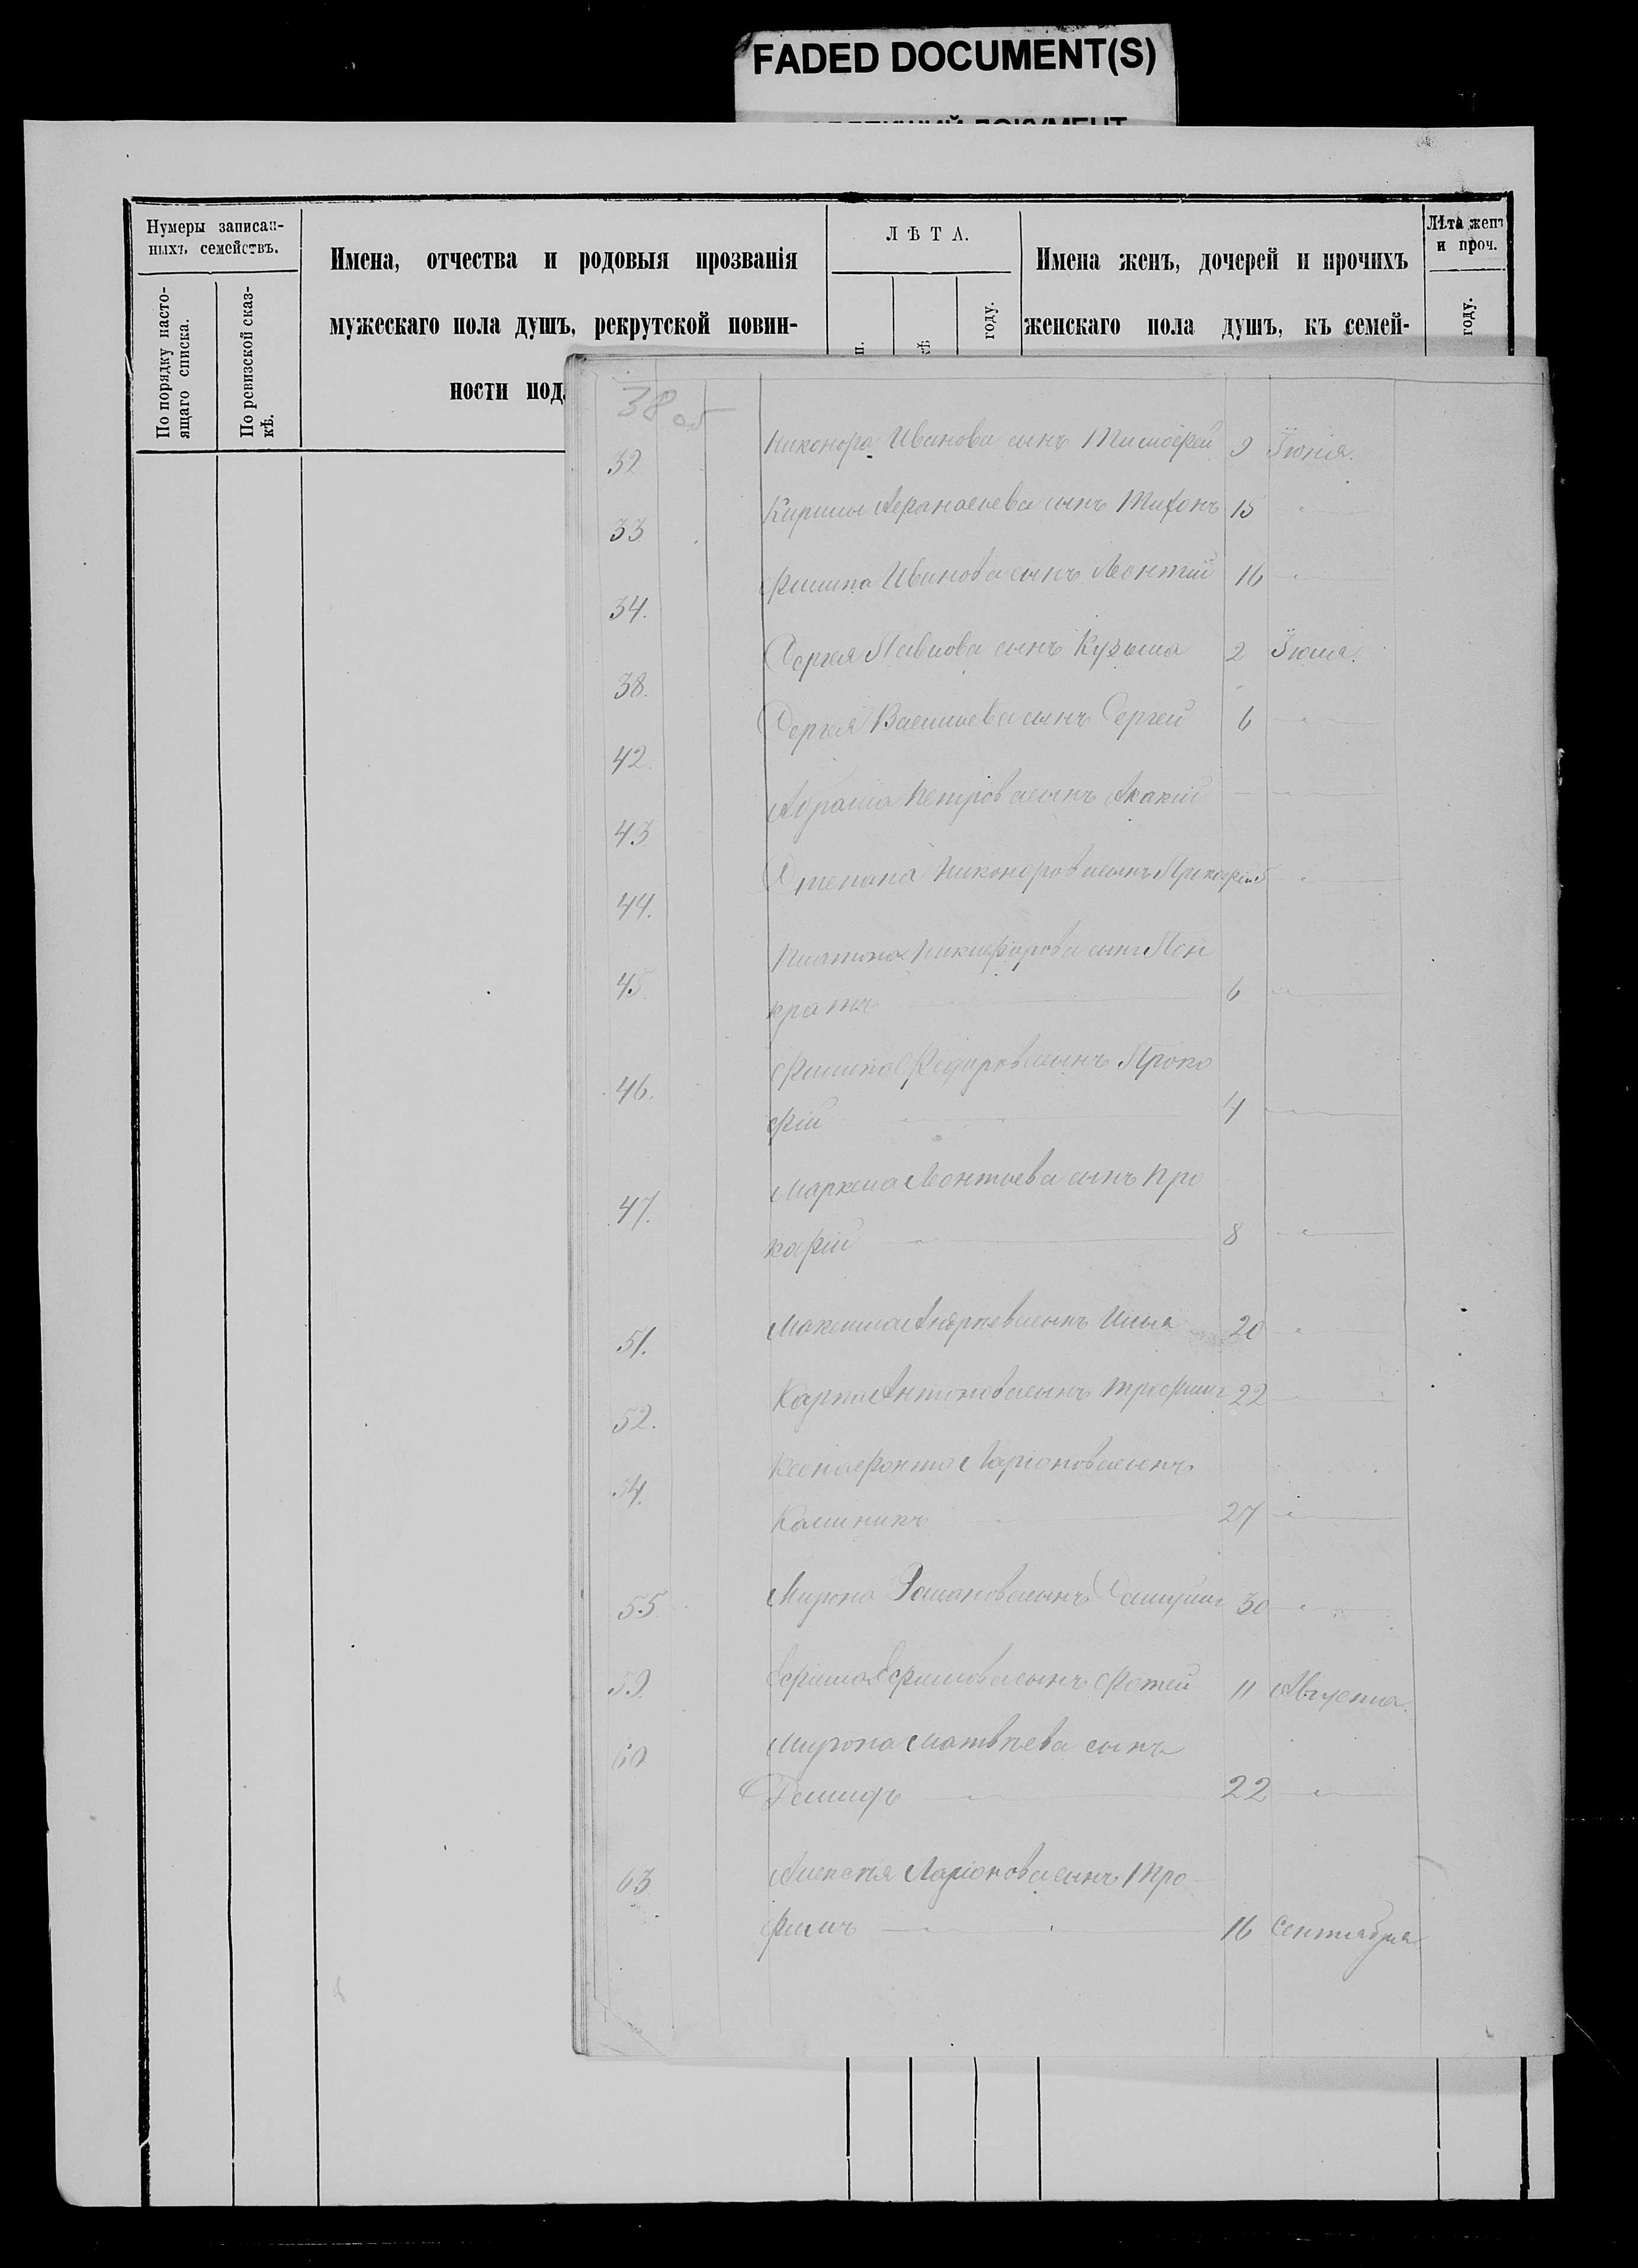 FADED DOCUMENT(S)
Нумеры записан-
ныхъ семействъ.
По порядку насто-
ящаго списка.
По ревизской сказ-
кѣ.
Имена, отчества и родовыя прозванія
мужескаго пола душъ, рекрутской повин-
ности под
ЛѢТА.
году.
Имена женъ, дочерей и прочихъ
женскаго пола душъ, къ семей-
Лѣта женъ
и проч.
году.
38 об
32. Никонора Иванова сынъ Тимофей 9 Іюня.
33 Кирилы Афанасьева сынъ Тихонъ 15 "
34. Филипа Иванова сынъ Леонтий 16 "
38. Сергея Павлова сынъ Кузьма 2 Іюля.
42. Сергея Васильева сынъ Сергей 6 "
43 Абрама Петрова сынъ Акакій
44. Степана Никонорова сынъ Прокофій "
45 Платона Никифорова сынъ Пон
кратъ 6 "
46. Филипа Федорова сынъ Проко
фій 4 "
47. Маркела Леонтьева сынъ Про
кофій 8 "
51. Максима сынъ Илья 20 "
52. Карпа Антонова сынъ Трофимъ 22 "
54. Ксенофонта Ларіонова сынъ
Калиникъ 27 "
55 Мирона Романова сынъ 30 "
59. Ефима Ефимова сынъ Фотей 11 Августа.
60 Мирона Матвѣева сынъ
Демидъ 22 "
63 Алексѣя Ларіонова сынъ Тро-
фимъ 16 Сентября